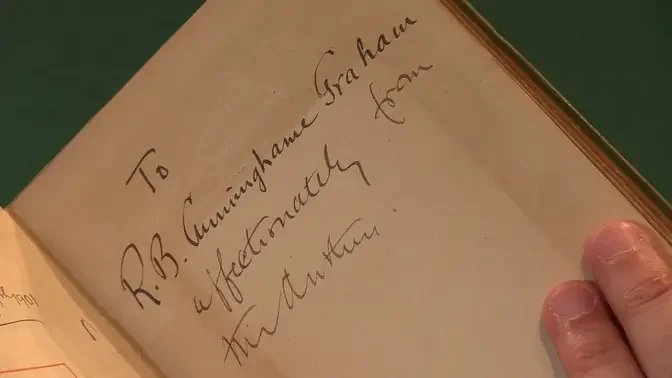 To
R.B. Cunninghame Graham
affectionately from
the Author.
1901